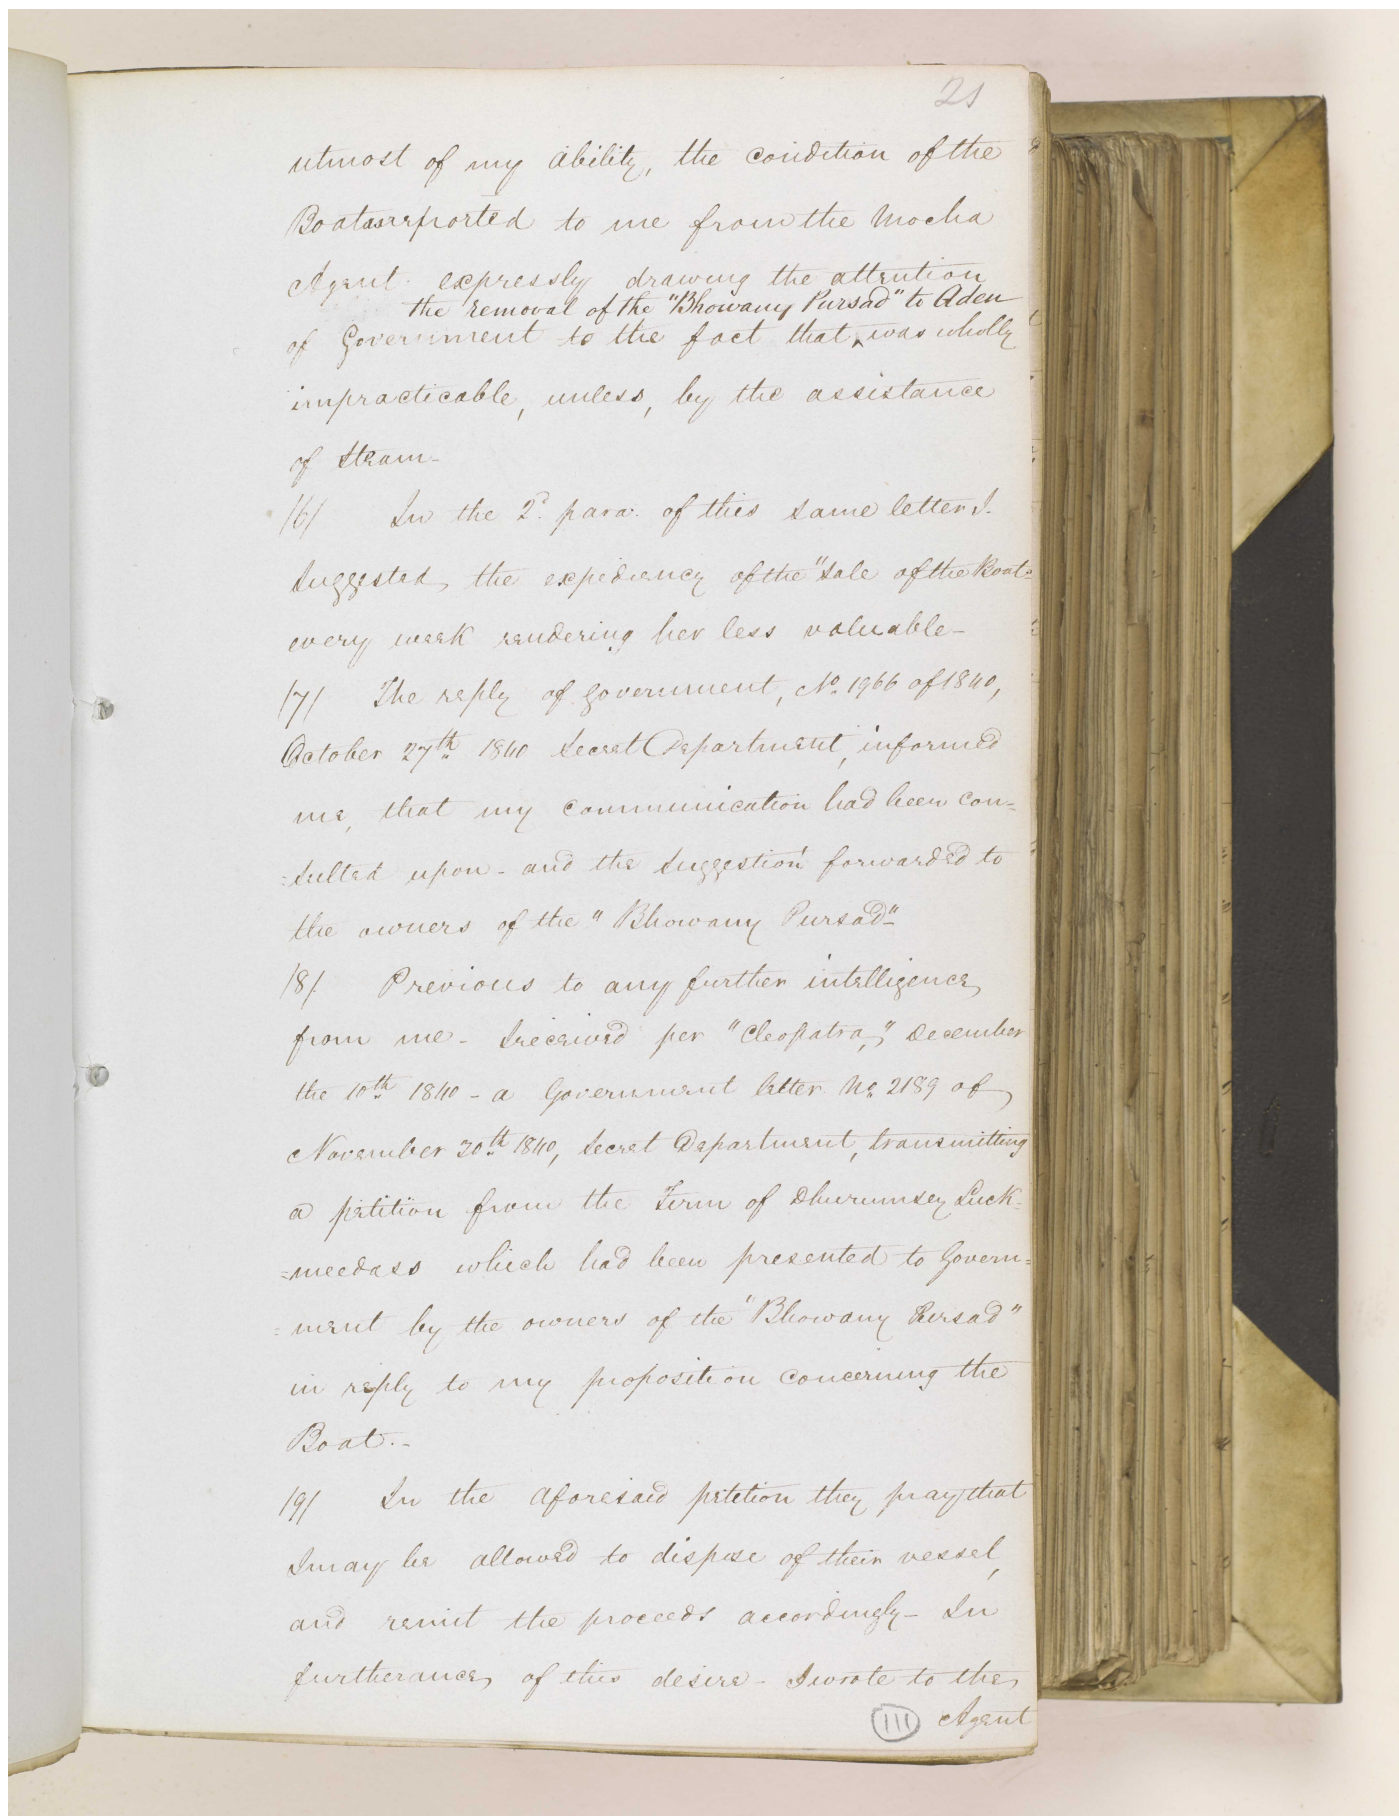 21
utmost of my ability, the condition of the
Boat as reported to me from the Mocha
Agent. expressly drawing the attention
the removal of the "Bhowany Pursad" to Aden
of Government to the fact that ^ was wholly
impracticable, unless, by the assistance
of Steam -
/6/ In the 2d. para. of this same letter I.
suggested, the expediency of the "Sale of the Boat"
every week rendering her less valuable -
/7/ The reply of Government, No. 1966 of 1840,
October 27th 1840 Secret Department, informed
me, that my communication had been con=
=sulted upon - and the suggestion forwarded to
the owners of the "Bhowany Pursad"
/8/ Previous to any further intelligence,
from me - I received per "Cleopatra," December
the 10th 1840 - a Government letter No. 2189 of
November 30th 1840, Secret Department, transmitting
a petition from the Firm of Dhurumsey Luck=
=meedass which had been presented to Govern=
=ment by the owners of the "Bhowany Pursad"
in reply to my proposition concerning the
Boat. -
/9/ In the aforesaid petition they pray that
I may be allowed to dispose of their vessel,
and remit the proceeds accordingly - In
furtherance, of this desire - I wrote to the,
111 Agent